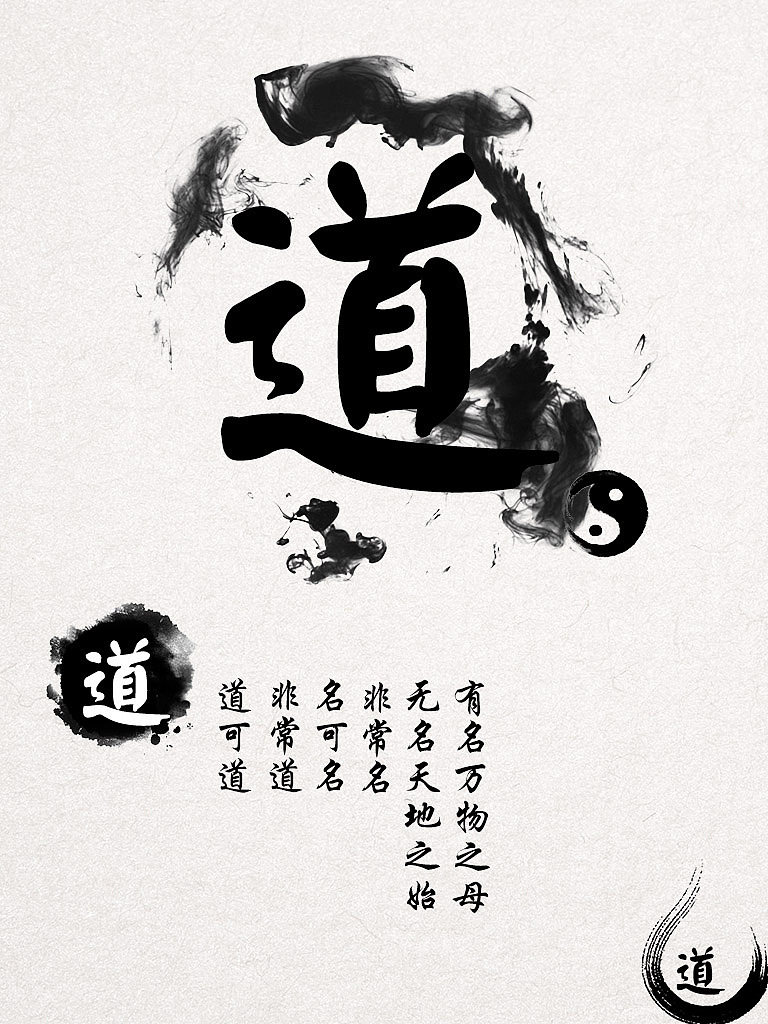 道
道
道可道
非常道
名可名
非常名
无名天地之始
有名万物之母
道